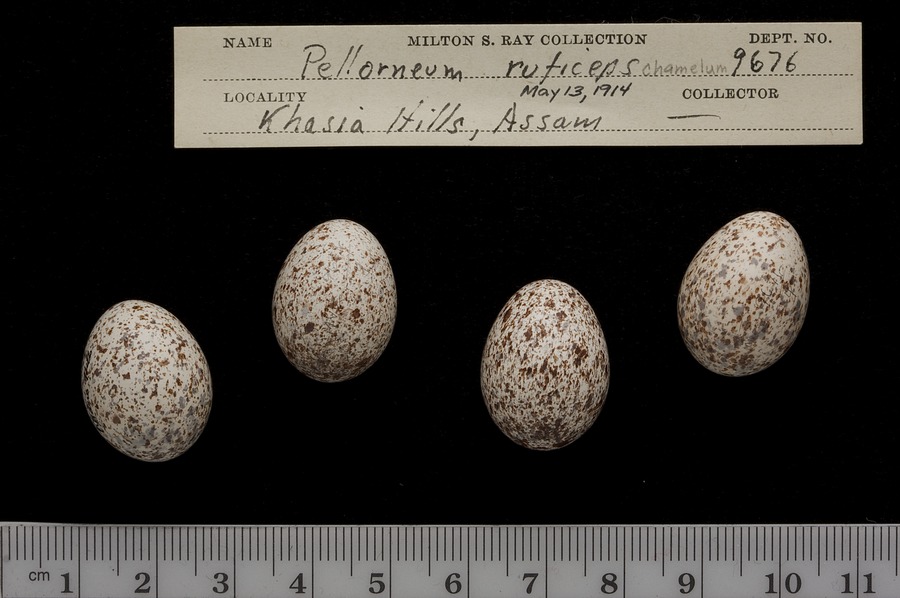 NAME MILTON S. RAY COLLECTION DEPT. NO.
Pellorneum ruficeps chamelum 9676
May 13, 1914
LOCALITY COLLECTOR
Khasia Hills, Assam —
cm 1 2 3 4 5 6 7 8 9 10 11